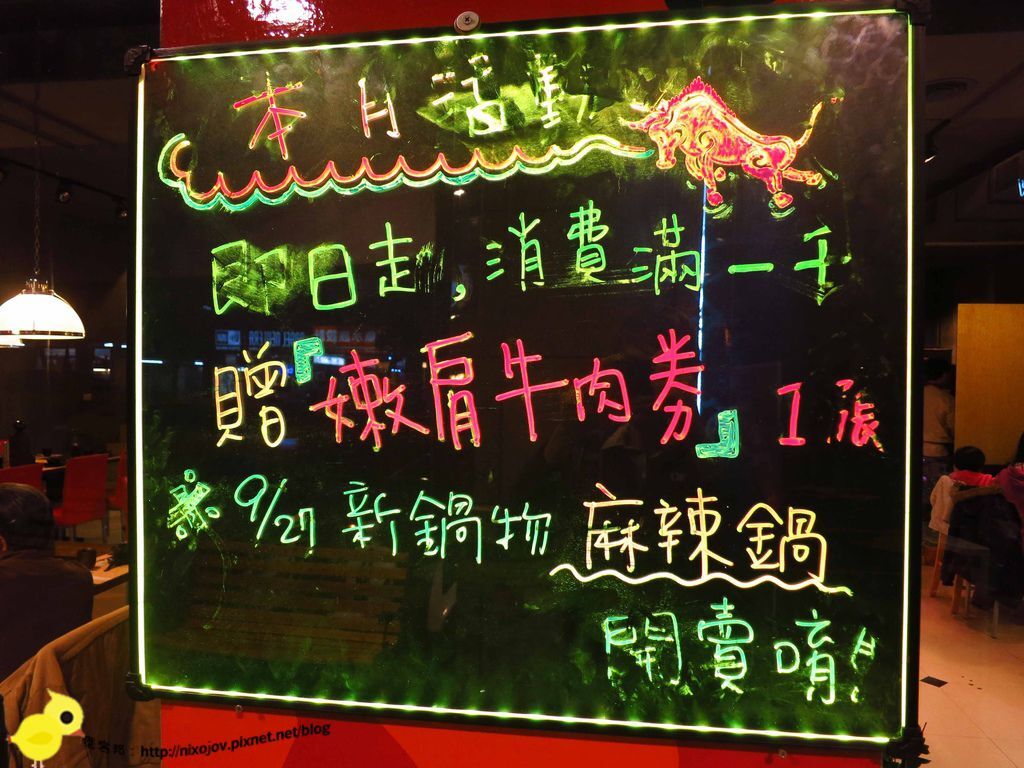 本月活動
即日起,消費滿一千
贈『嫩肩牛肉券』1張
※ 9/27 新鍋物 麻辣鍋
開賣唷!
痞客邦：http://nixojov.pixnet.net/blog